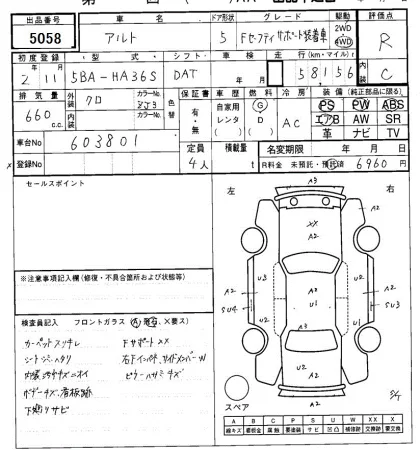 出品番号 車名 ドア形状 グレード 駆動 評価点
5058 アルト 5 Fセーフティサポート装着車 2WD 4WD R
初度登録 型式 シフト 車検 走行(km・マイル) 内装
2年 11月 5BA-HA36S DAT 年 月 58156 C
排気量 外装 クロ カラーNo. 色替 保証書 車歴 燃料 冷房 装備(純正部品に限る)
660 c.c. 内装 カラーNo. 有・無 自家用 レンタ G D AC PS PW ABS
エアB AW SR
革 ナビ TV
車台No 603801 定員 積載量 名変期限 年 月 日
登録No 4人 t R料金 未預託・預託済 6960円
セールスポイント
左 右
A3
A2
XX
A2
A2 U3 A2 U3 A2
SU4 U2 U1 U2 SU3
A3
U2
A2
A2
スペア
※注意事項記入欄(修復・不具合箇所および状態等)
検査員記入 フロントガラス (A)飛石、X要ス)
カーペットスリキレ 下サポートXX
シートシミ・ハタリ 右下インパネ、サイドメンバーW
下廻リサビ
A B C P S U W X XX X
線キズ 腐蝕 要塗装 サビ 凹凸 補修跡 交換跡 要交換